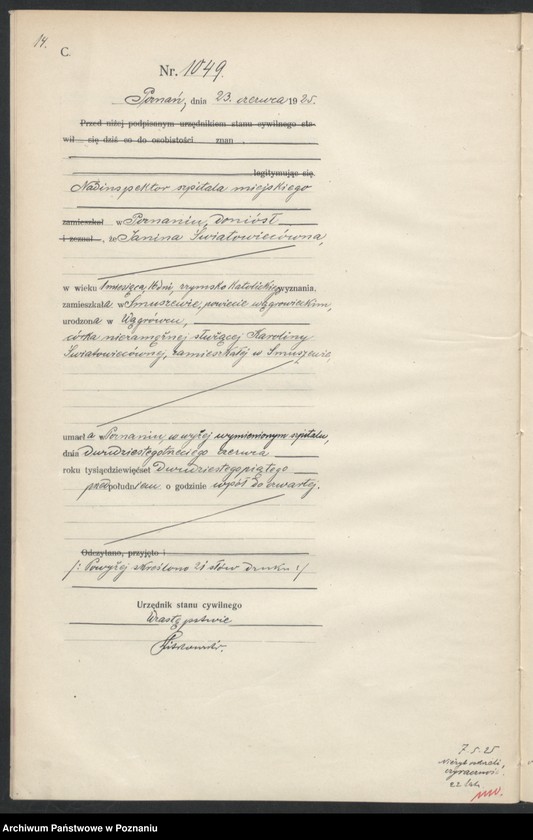 14.
C.
Nr. 1049.
Poznań, dnia 23. czerwca 1925.
Przed niżej podpisanym urzędnikiem stanu cywilnego sta-
wił się dziś co do osobistości znan
legitymując się
Nadinspektor szpitala miejskiego
zamieszkał w Poznaniu, doniósł
i zeznał, że Janina Światowiecówna,
w wieku 1 miesiąca, dni, rzymsko katolickiego wyznania,
zamieszkała w Smuszewie, powiecie wągrowieckim,
urodzona w Wągrówcu,
córka niezamężnej służącej Karoliny
Światowiecównej, zamieszkałej w Smuszewie,
umarła w Poznaniu, w wyżej wymienionym szpitalu,
dnia dwudziestego trzeciego czerwca
roku tysiącdziewięćset dwudziestego piątego
przedpołudniem o godzinie wpół do czwartej.
Odczytano, przyjęto i
/: Powyżej skreślono 21 słów druku :/
Urzędnik stanu cywilnego
W zastępstwie
7.5.25
Archiwum Państwowe w Poznaniu